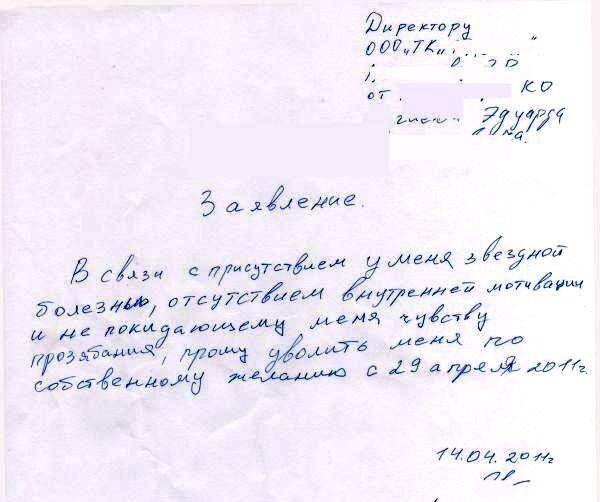 Директору
ООО „ТК„
от КО
Эдуарда
Заявление.
В связи с присутствием у меня звездной
болезнью, отсутствием внутренней мотивации
и не покидающему меня чувству
прозябания, прошу уволить меня по
собственному желанию с 29 апреля 2011г.
14.04.2011г